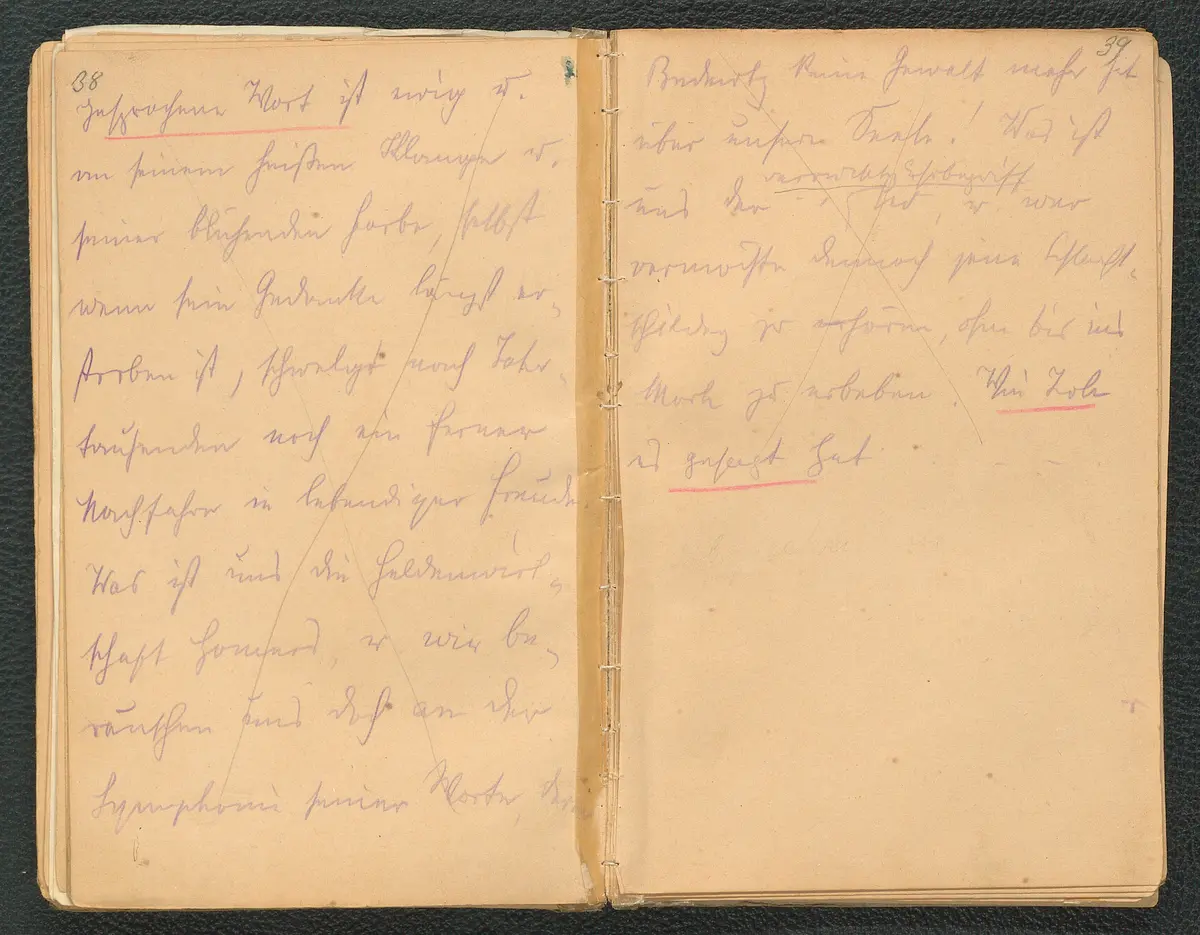 38
gesprochene Wort ist ewig u.
an seinem heißen Klange u.
seiner blühenden Farbe, selbst
wenn sein Gedanke längst er-
storben ist, schwelgt nach Jahr-
tausenden noch ein ferner
Nachfahre in lebendiger Freude
Was ist uns die Heldenwirt-
schaft Homers, u wir be-
rauschen uns doch an der
Symphonie seiner Worte, der
39
Bedeutg keine Gewalt mehr hat
über unsere Seele! Was ist
verrückte Ehrbegriff
uns der Cid, u. wer
vermöchte dennoch jene Schlacht-
schilderg zu hören, ohne bis ins
Mark zu erbeben. Wie Zola
es gesagt hat